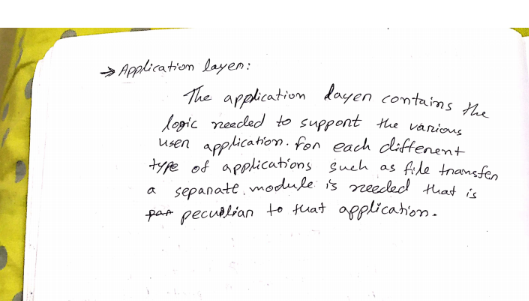 → Application layer:
The application layer contains the
logic needed to support the various
user application. for each different
type of applications such as file transfer
a separate module is needed that is
peculiar to that application.